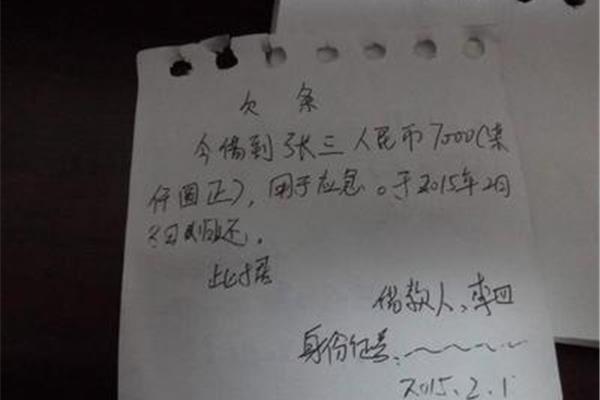 欠 条
今借到张三人民币7000(柒
仟圆正),用于应急。于2015年2月
日归还。
此据
借款人:李四
身份证号:
2015.2.1